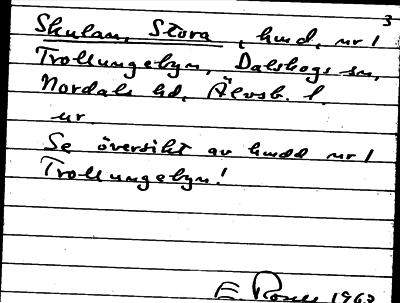 3
Skulan, Stora, hmd, nr 1
Trollungebyn, Dalskogs sn,
Nordals hd, Älvsb. l.
ur.
Se översikt av hmdd nr 1
Trollungebyn!
E. 1963